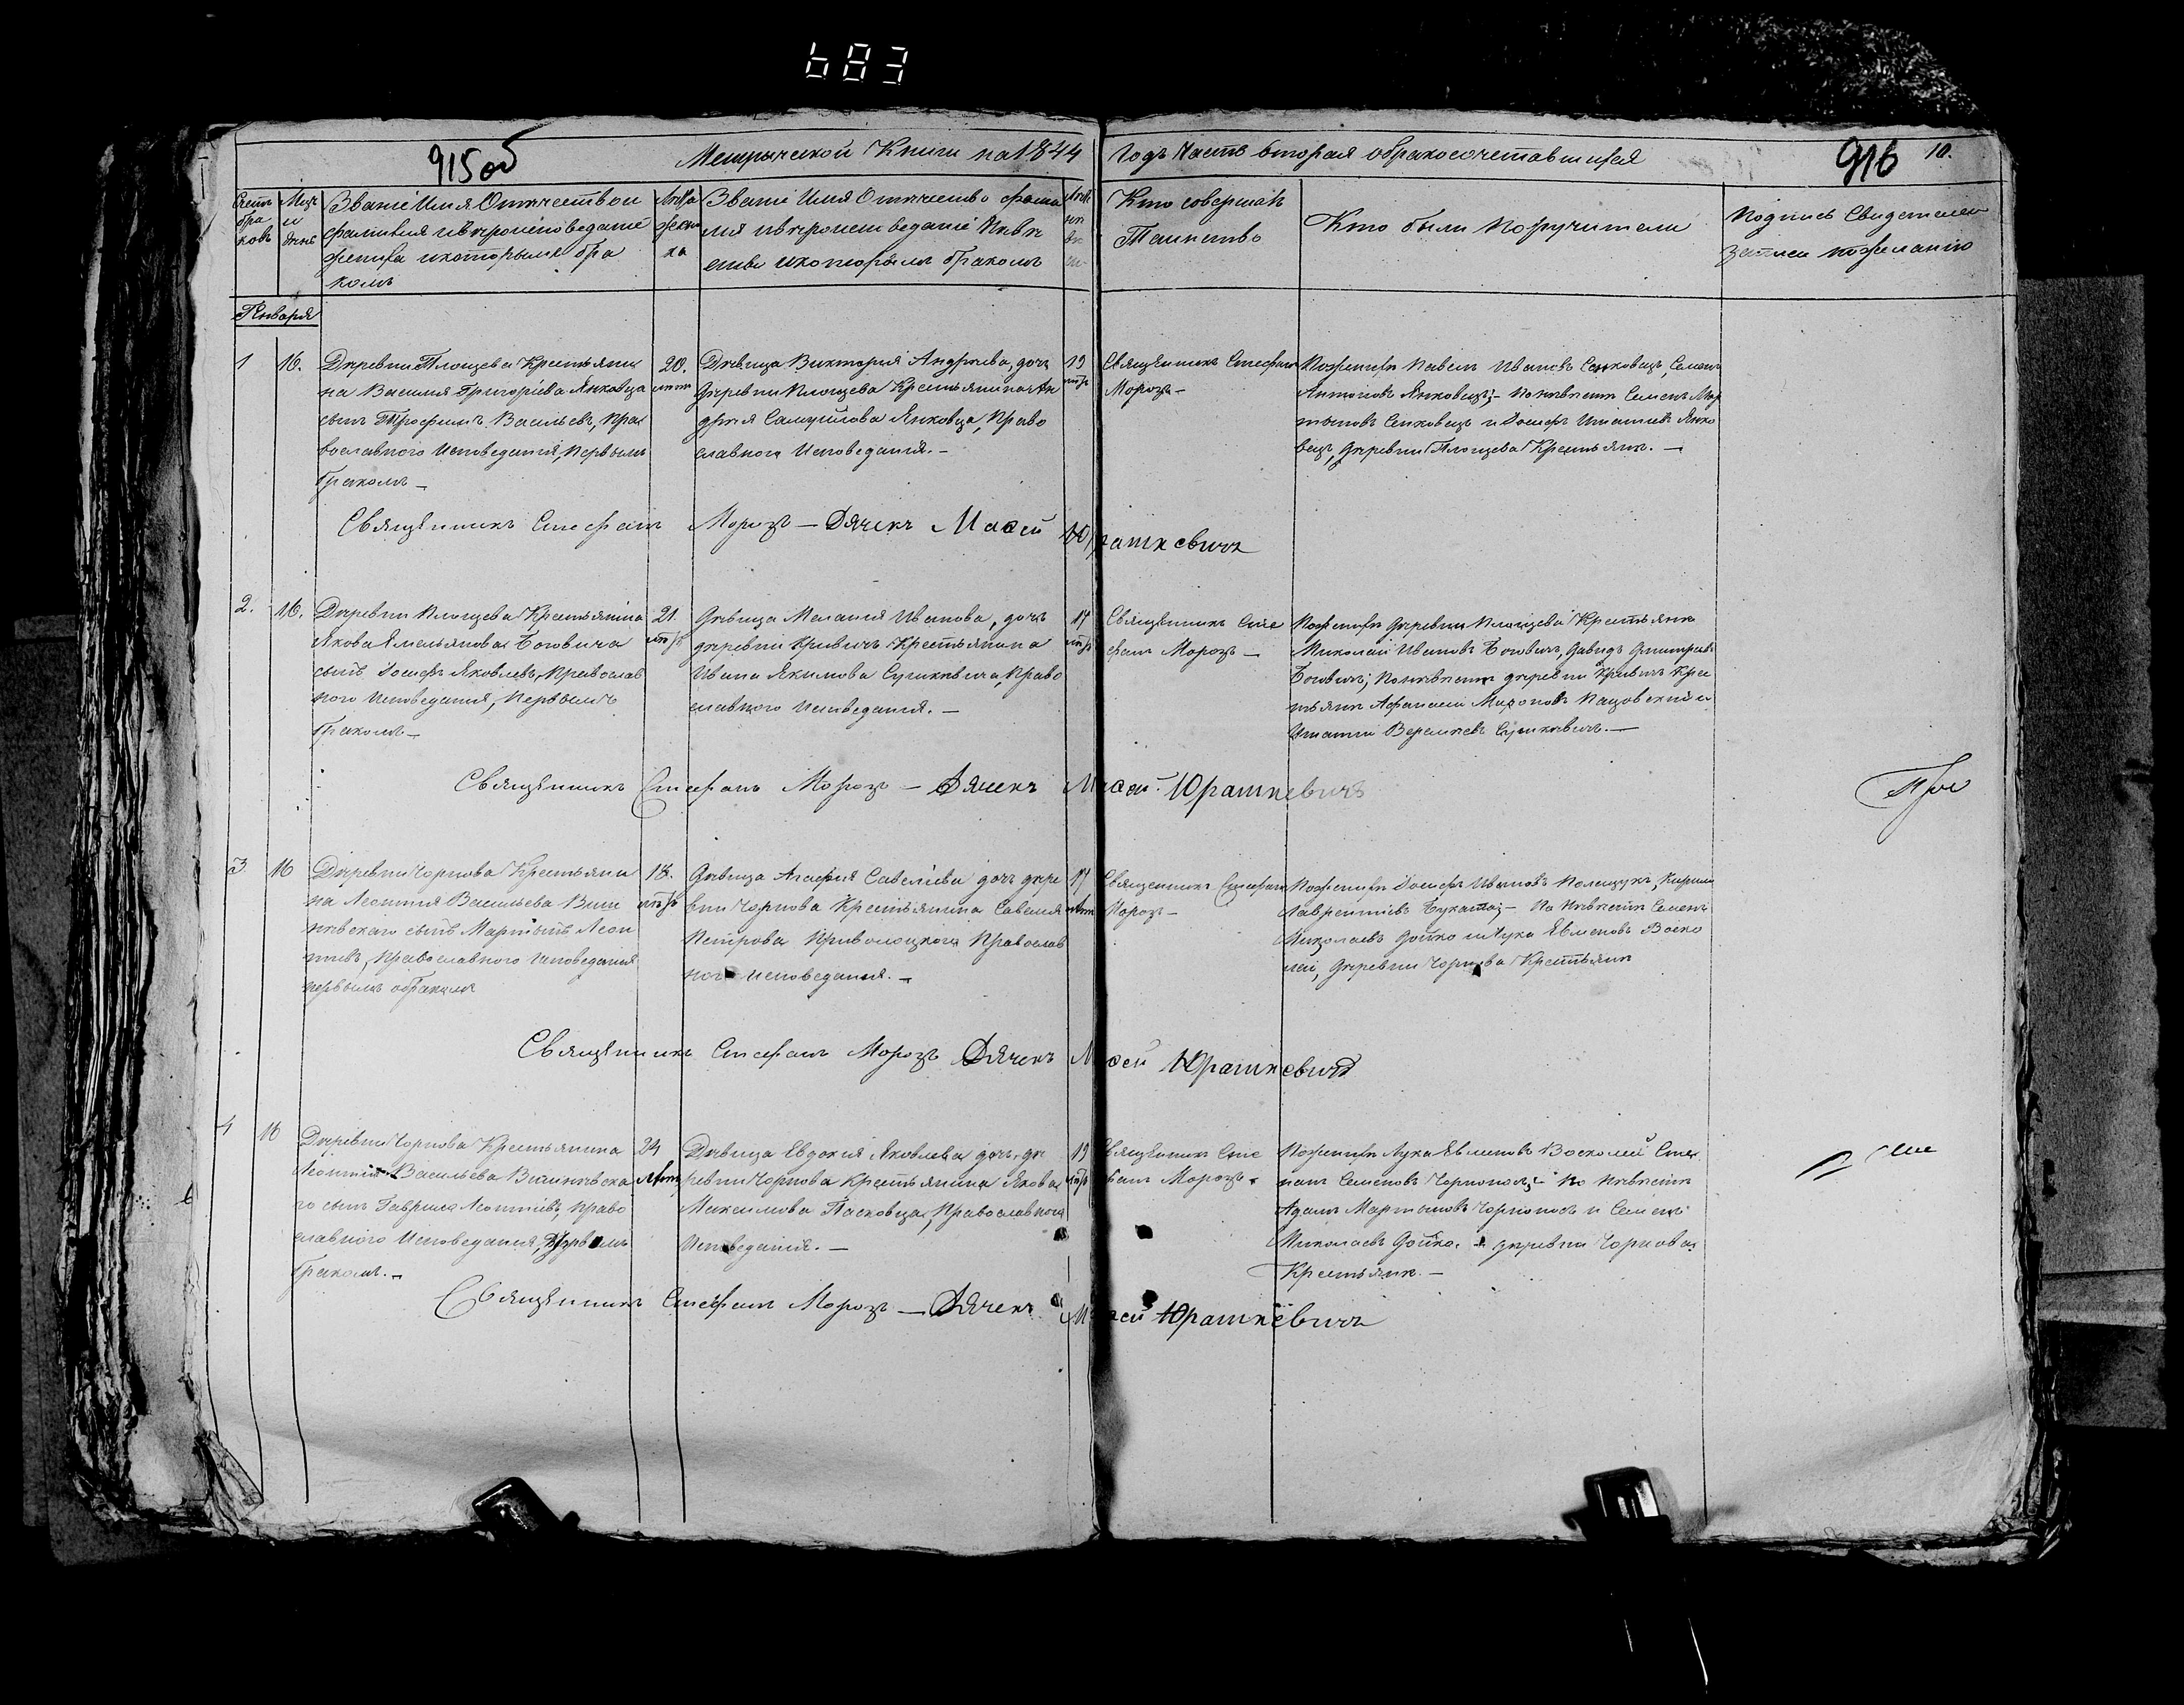 683
915 об
Метрической Книги на 1844
Годъ Часть вторая о бракосочетавшихся
916
10.
Счетъ браковъ
Мцъ и день
Званіе Имя Отчество и
фамилия и вѣроисповеданіе
жениха и которымъ бра
комъ
Лѣта жени
ха
Званіе Имя Отчество фами
лия и вѣроисповеданіе Невѣ
сты и которымъ бракомъ
Кто совершалъ
Таинство
Кто были Поручители
Подпись Свидетелей
записи по желанію
Января
1
16.
Деревни Площева Крестьяни
на Василия Григоріева Янковца
сынъ Трофимъ Васильевъ, Пра
вославного Исповедания, Первымъ
бракомъ —
20.
лѣтъ
Дѣвица Виктория Андреева, дочь
деревни Площева Крестьянина Ан
дрея Самуйлова Янковца, Право
славного Исповедания. —
19
лѣтъ
Священникъ Стефанъ
Морозъ —
По женихѣ Павелъ Ивановъ Сенковецъ, Семенъ
Антоновъ Янковецъ; — По невѣстѣ Семенъ Мар
тыновъ Сенковецъ и Іосифъ Игнатиевъ Янко
вецъ, деревни Площева Крестьяне. —
Священникъ Стефанъ Морозъ — Дячекъ Масей Юрашкевичъ
2.
16.
Деревни Площева Крестьянина
Якова Емельянова Боговича
сынъ Іосифъ Яковлевъ, Православ
ного Исповедания, Первымъ
бракомъ —
21
лѣтъ
Дѣвица Мелания Иванова, дочь
деревни Кривичъ Крестьянина
Ивана Якимова Сушкевича, Право
славного Исповедания. —
17
лѣтъ
Священникъ Сте
фанъ Морозъ —
По женихѣ деревни Площева Крестьяне
Миколай Ивановъ Богович, Давидъ Дмитриевъ
Боговичъ; По невѣстѣ деревни Кривичъ Крес
тьяне Афанасий Мироновъ Пацовский и
Игнатий Сушкевичъ. —
Священникъ Стефанъ Морозъ — Дячекъ Масей Юрашкевичъ
3
16
Деревни Чорнова Крестьяни
на Леонтия Васильева Виш
невскаго сынъ Мартынъ Леон
тиевъ, Православного Исповедания
первымъ бракомъ
18.
лѣтъ
Дѣвица Агафия Савелиева дочь дере
вни Чорнова Крестьянина Савелия
Петрова Приволоцкого Православ
ного Исповедания. —
17
лѣтъ
Священникъ Стефанъ
Морозъ —
По женихѣ Іосифъ Ивановъ Полещукъ, Кирила
Лаврентиевъ Букатой; — По Невѣстѣ Семенъ
Миколаевъ Дойко и Лука Евменовъ Воско
лей, деревни Чорнова Крестьяне
Священникъ Стефанъ Морозъ Дячекъ Масей Юрашкевичъ
4
16
Деревни Чорнова Крестьянина
Леонтия Васильева Вишневска
го сынъ Гаврила Леонтиевъ, Право
славного Исповедания, Первымъ
бракомъ. —
24
лѣтъ
Дѣвица Евдокия Яковлева дочь, де
ревни Чорнова Крестьянина Якова
Максимова Пасковца, Православного
Исповедания. —
19
лѣтъ
Священникъ Сте
фанъ Морозъ.
По женихѣ Лука Евменовъ Восколей Сте
панъ Семеновъ По невѣстѣ
Адамъ Мартыновъ и Семенъ
Миколаевъ Дойко. — деревни Чорнова
Крестьяне. —
Священникъ Стефанъ Морозъ — Дячекъ Масей Юрашкевичъ